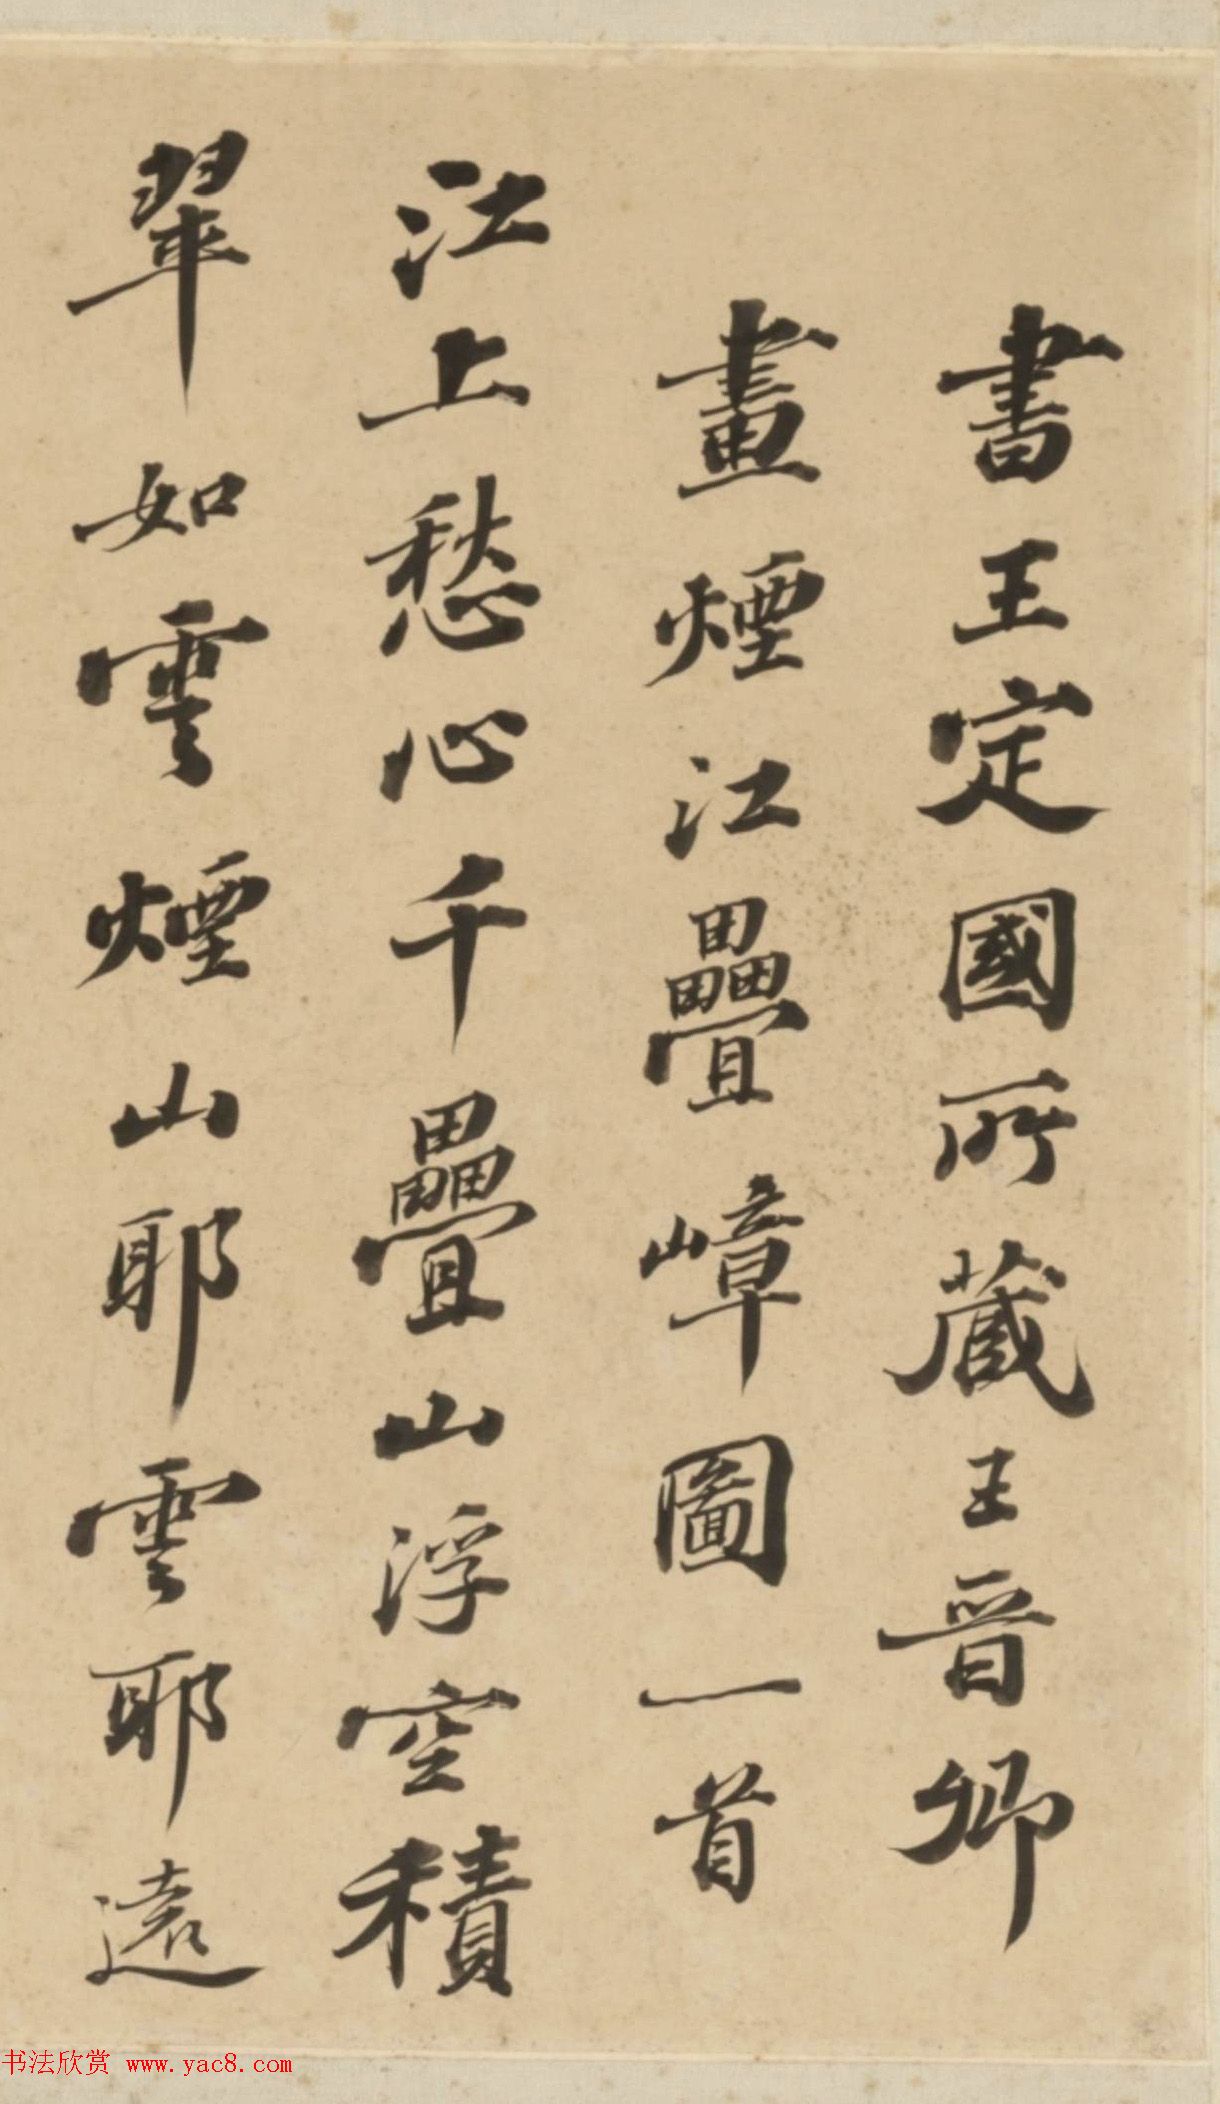 書王定國所蔵王晉卿
畫煙江疊嶂圖一首
江上愁心千疊山浮空積
翠如雲煙山耶雲耶遠
书法欣赏 www.yac8.com